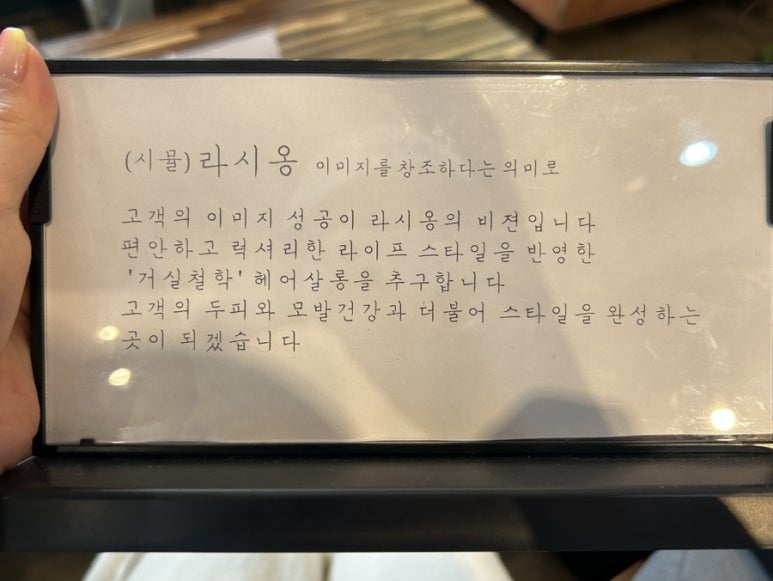 (시뮬)라시옹 이미지를 창조하다는 의미로
고객의 이미지 성공이 라시옹의 비젼입니다
편안하고 럭셔리한 라이프 스타일을 반영한
'거실철학' 헤어살롱을 추구합니다
고객의 두피와 모발건강과 더불어 스타일을 완성하는
곳이 되겠습니다